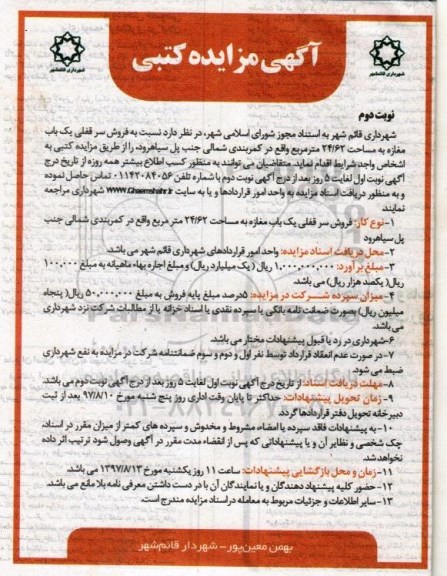 آگهی مزایده کتبی
شهرداری قائمشهر
شهرداری قائمشهر
نوبت دوم
شهرداری قائم شهر به استناد مجوز شورای اسلامی شهر، در نظر دارد نسبت به فروش سر قفلی یک باب
مغازه به مساحت ۲۴/۶۲ مترمربع واقع در کمربندی شمالی جنب پل سیاهرود، را از طریق مزایده کتبی به
اشخاص واجد شرایط اقدام نماید. متقاضیان می توانند به منظور کسب اطلاع بیشتر همه روزه از تاریخ درج
آگهی نوبت اول لغایت ۵ روز بعد از درج آگهی نوبت دوم با شماره تلفن ۰۱۱۴۲۰۸۴۰۵۶ تماس حاصل نموده
و به منظور دریافت اسناد مزایده به واحد امور قراردادها و یا به سایت www.Ghaemshahr.ir شهرداری مراجعه
نمایند
۱- نوع کار: فروش سر قفلی یک باب مغازه به مساحت ۲۴/۶۲ متر مربع واقع در کمربندی شمالی جنب
پل سیاهرود
۲- محل دریافت اسناد مزایده: واحد امور قراردادهای شهرداری قائم شهر می باشد.
۳- مبلغ برآورد: ۱,۰۰۰,۰۰۰,۰۰۰ ریال ( یک میلیارد ریال) و مبلغ اجاره بهاء ماهیانه به مبلغ ۱۰۰,۰۰۰
ریال( یکصد هزار ریال) می باشد.
۴- میزان سپرده شرکت در مزایده: ۵درصد مبلغ پایه فروش به مبلغ ۵۰,۰۰۰,۰۰۰ ریال( پنجاه
میلیون ریال) بصورت ضمانت نامه بانکی یا سپرده نقدی یا اسناد خزانه یا از مطالبات شرکت نزد شهرداری
می باشد.
۶-شهرداری در رد یا قبول پیشنهادات مختار می باشد.
۷-در صورت عدم انعقاد قرارداد توسط نفر اول و دوم و سوم ضمانتنامه شرکت در مزایده به نفع شهرداری
ضبط می شود.
۸- مهلت دریافت اسناد: از تاریخ درج آگهی نوبت اول لغایت ۵ روز بعد از درج آگهی نوبت دوم می باشد.
۹- زمان تحویل پیشنهادات: حداکثر تا پایان وقت اداری روز پنج شنبه مورخ ۹۷/۸/۱۰ بعد از ثبت
دبیرخانه تحویل دفتر قراردادها گردد.
۱۰- به پیشنهادات فاقد سپرده یا امضاء مشروط و مخدوش و سپرده های کمتر از میزان مقرر در اسناد،
چک شخصی و نظایر آن و یا پیشنهاداتی که پس از انقضاء مدت مقرر در آگهی وصول شود ترتیب اثر داده
نخواهد شد.
۱۱- زمان و محل بازگشایی پیشنهادات: ساعت ۱۱ روز یکشنبه مورخ ۱۳۹۷/۸/۱۳ می باشد.
۱۲- حضور کلیه پیشنهاد دهندگان و یا نمایندگان آن با در دست داشتن معرفی نامه بلامانع می باشد.
۱۳- سایر اطلاعات و جزئیات مربوط به معامله در اسناد مزایده مندرج است.
بهمن معین‌پور - شهردار قائم‌شهر